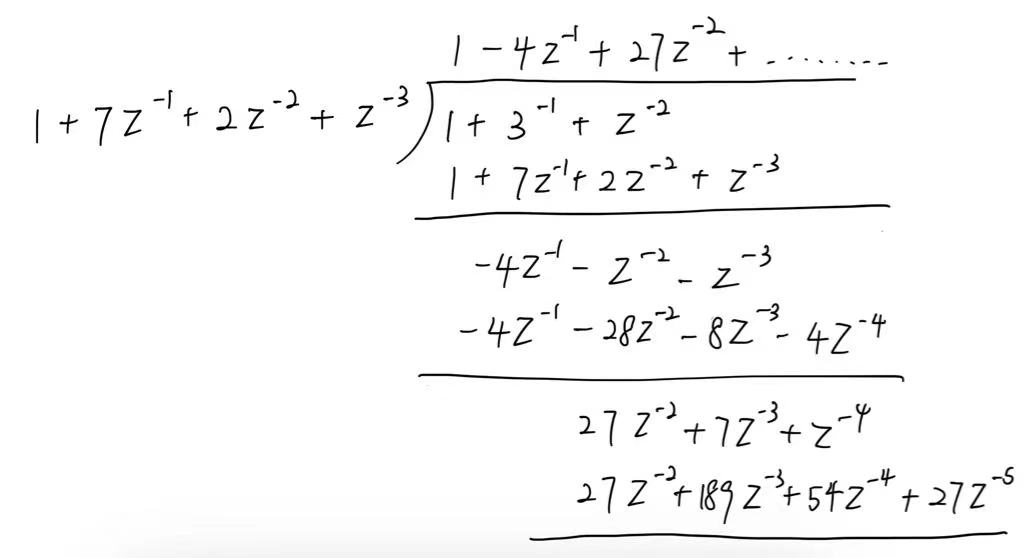 1 - 4z⁻¹ + 27z⁻² + ........
1 + 7z⁻¹ + 2z⁻² + z⁻³ ) 1 + 3⁻¹ + z⁻²
1 + 7z⁻¹ + 2z⁻² + z⁻³
-4z⁻¹ - z⁻² - z⁻³
-4z⁻¹ - 28z⁻² - 8z⁻³ - 4z⁻⁴
27z⁻² + 7z⁻³ + z⁻⁴
27z⁻² + 189z⁻³ + 54z⁻⁴ + 27z⁻⁵